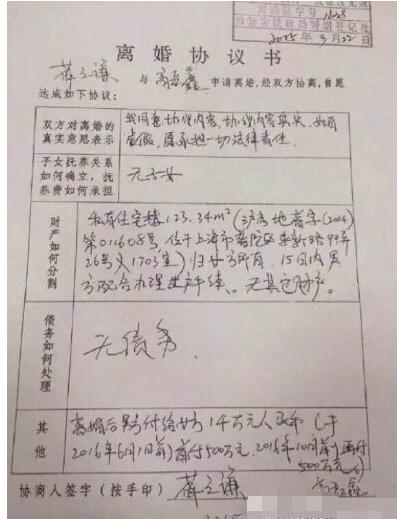 2015 年 3 月 22 日
离婚协议书
蒋 谦 与 鑫 申请离婚,经双方协商,自愿
达成如下协议:
双方对离婚的
真实意思表示
我同意协议内容,协议内容真实,如有
虚假,愿承担一切法律责任。
子女抚养关系
如何确立,抚
养费如何承担
无子女
财产如何分割
私有住宅楼123.34m²(沪房地普字(2014)
第011608号,位于上海市普陀区 路99弄
26号 1703室)归女方所有,15日内男
方配合办理过户手续。无其它财产。
债务如何处理
无债务.
其他
离婚后男方付给女方1千万元人民币(于
2016年6月1日前)首付500万元,2016年10月前再付
500万元.
协商人签字(按手印)
2015